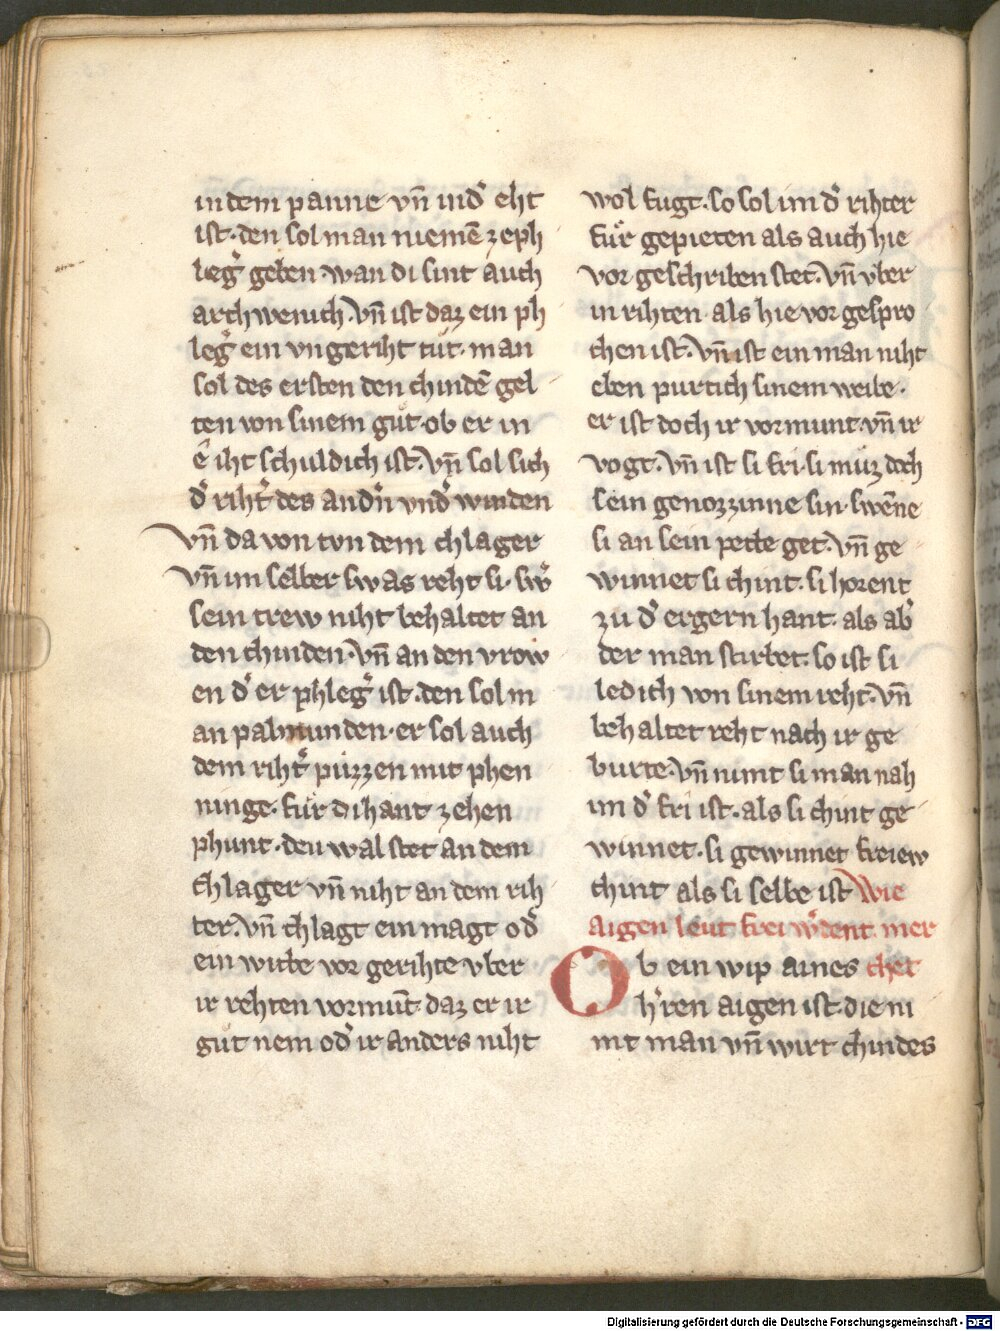 in dem panne vn̄ in d̾ eht
ist · den sol man niemē ze ph
leg̾ geben · wan di sint auch
archwenich · vn̄ ist daz ein ph
leg̾ ein vngeriht tůt · man
sol des ersten den chindē gel
ten von sinem gůt · ob er in
ê iht schuldich ist · vn̄ sol sich
d̾ riht̾ des and̾n vnd̾ winden
vn̄ da von tvn dem chlager
vn̄ im selber swas reht si · sw̾
sein trew niht behaltet an
den chinden · vn̄ an den vrow
en d̾ er phleg̾ ist · den sol m
an palmunden · er sol auch
dem riht̾ půzzen mit phen
ninge · für di hant zehen
phunt · deu wal stet an dem
chlager vn̄ niht an dem rih
ter · vn̄ chlagt ein magt od̾
ein witbe vor gerihte vber
ir rehten vormūt · daz er ir
gůt nem od̾ ir anders niht
wol fugt · so sol im d̾ rihter
für gepieten als auch hie
vor geschriben stet · vn̄ vber
in rihten · als hie vor gespro
chen ist · vn̄ ist ein man niht
eben purtich sinem weibe ·
er ist doch ir vormunt · vn̄ ir
vogt · vn̄ ist si fri · si můz doch
sein genozzinne sin · swēne
si an sein pette get · vn̄ ge
winnet si chint · si horent
zu d̾ ergern hant · als ab̾
der man stirbet · so ist si
ledich von sinem reht · vn̄
behaltet reht nach ir ge
burte · vn̄ nimt si man nah
im d̾ fri ist · als si chint ge
winnet · si gewinnet freiew
chint als si selbe ist Wie
aigen leut frei w̾dent mer
Ob ein wip aines chet
h̾ren aigen ist · die ni
mt man vn̄ wirt chindes
Digitalisierung gefördert durch die Deutsche Forschungsgemeinschaft - DFG